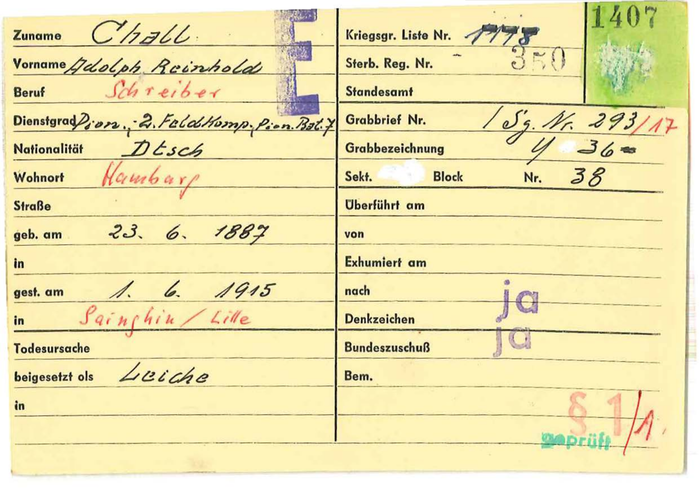 Zuname Chall
Vorname Adolph Reinhold
Beruf Schreiber
Dienstgrad Pion., 2. Feldkomp. Pion. Bat. 7
Nationalität Dtsch
Wohnort Hamburg
Straße
geb. am 23. 6. 1887
in
gest. am 1. 6. 1915
in Sainghin / Lille
Todesursache
beigesetzt als Leiche
in
E
Kriegsgr. Liste Nr.
Sterb. Reg. Nr. - 350
Standesamt
Grabbrief Nr. / Sg. Nr. 293/17
Grabbezeichnung 36-
Sekt. Block Nr. 38
Überführt am
von
Exhumiert am
nach ja
Denkzeichen
Bundeszuschuß ja
Bem.
§ 1/1.
geprüft
1407